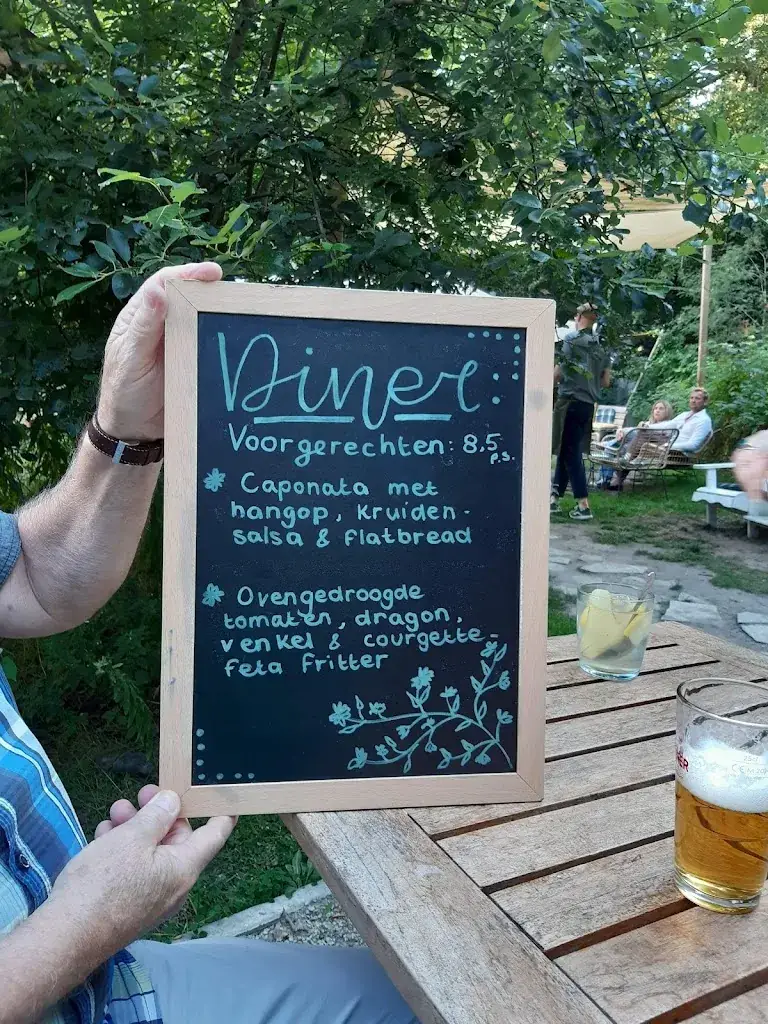 Diner
Voorgerechten: 8,5
p.s.
Caponata met
hangop, kruiden-
salsa & flatbread
Ovengedroogde
tomaten, dragon,
venkel & courgette-
feta fritter